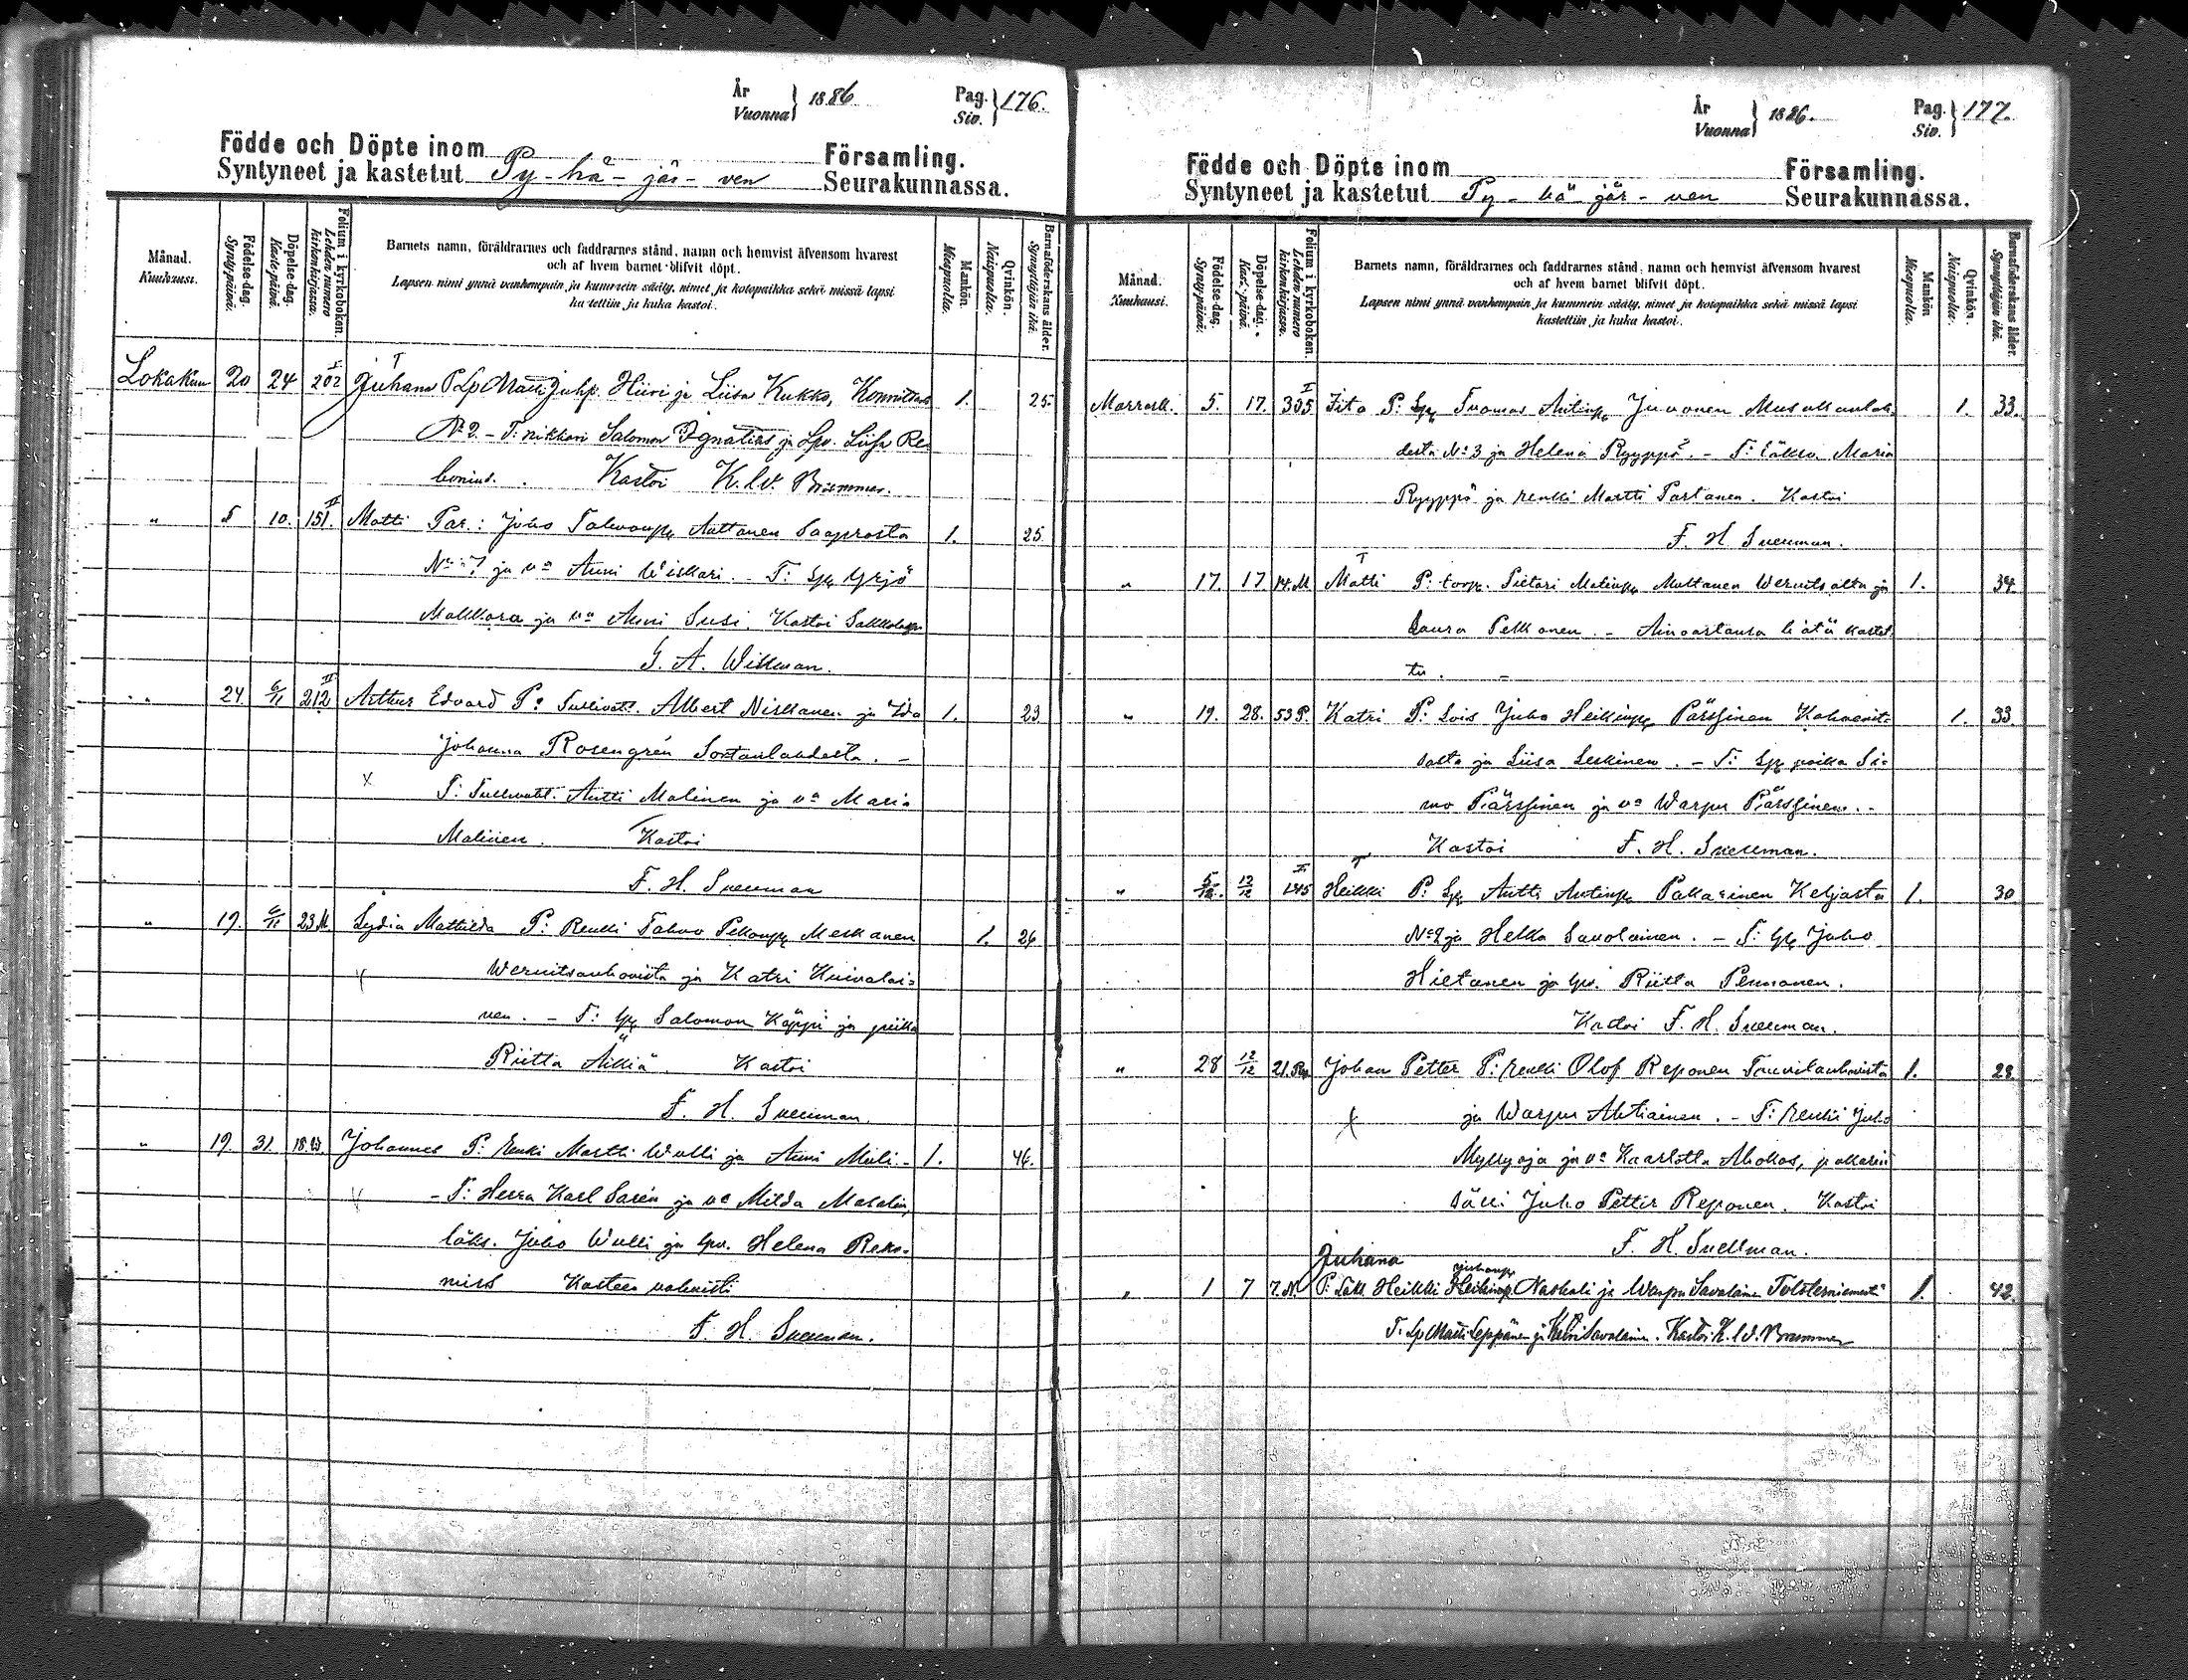 År
Vuonna } 1886
Pag.
Siv. } 176.
Födde och Döpte inom Församling.
Syntyneet ja kastetut Py-hä-jär-ven Seurakunnassa.
Månad.
Kuukausi.
Födelse-dag.
Syntypäivä.
Döpelse-dag.
Kaste-päivä.
Folium i kyrkoboken.
Lehden numero kirkonkirjassa.
Barnets namn, föräldrarnes och faddrarnes stånd, namn och hemvist äfvensom hvarest
och af hvem barnet blifvit döpt.
Lapsen nimi ynnä vanhempain ja kummein sääty, nimet ja kotopaikka sekä missä lapsi
kastettiin ja kuka kastoi.
Mankön.
Miespuolia.
Qvinkön.
Naispuolia.
Barnaföderskans ålder.
Synnyttäjän ikä.
Lokakuu 20 24 I 202 Juhana P. Lp. Matti Juhp. Hiiri ja Liisa Kukko, Konnitsa 1. 25.
No 2. - T: nikkari Salomon Ignatius ja Lpv. Liisa Re-
bonius. Kastoi K. W. Brummer.
" 5 10. II 151. Matti Par.: Juho Tahvonp. Auttanen Saaprosta 1. 25.
No 7 ja va Anni Wiskari. T: Lp. Yrjö
Malkkara ja va Anni Susi. Kastoi
G. A. Wikman.
" 24. 6/11 II 212 Arthur Edvard P: Albert Niskanen ja Ida 1. 23
Johanna Rosengrén Sortanlahdesta. -
x T: Antti Malinen ja va Maria
Malinen. Kastoi
F. H. Snellman
" 19. 6/11 23 M Lydia Mathilda P: Renki Tahvo Pekanp. Meskanen 1. 26
ja Katri Kuivalai-
nen. - T: Lp. Salomon Käppi ja piika
Riitta Äikiä. Kastoi
F. H. Snellman.
" 19. 31. 18.W. Johannes P: Renki Martti Wulli ja Anni Muli- 1. 46.
- T: Herra Karl Sarén ja va Milda
läks. Juho Wulli ja Lpv. Helena
Kasteen vahvisti
F. H. Snellman.
År
Vuonna } 1886.
Pag.
Siv. } 177.
Födde och Döpte inom Församling.
Syntyneet ja kastetut Py-hä-jär-ven Seurakunnassa.
Månad.
Kuukausi.
Födelse-dag.
Syntypäivä.
Döpelse-dag.
Kaste-päivä.
Folium i kyrkoboken.
Lehden numero kirkonkirjassa.
Barnets namn, föräldrarnes och faddrarnes stånd, namn och hemvist äfvensom hvarest
och af hvem barnet blifvit döpt.
Lapsen nimi ynnä vanhempain ja kummein sääty, nimet ja kotopaikka sekä missä lapsi
kastettiin ja kuka kastoi.
Mankön
Miespuolia.
Qvinkön.
Naispuolia.
Barnaföderskans ålder.
Synnyttäjän ikä.
Marrask. 5. 17. I 305 P: Lp. Tuomas Antinp. Juvonen Musakanlah- 1. 33.
desta No 3 ja Helena Ryyppö. - T: Maria
Ryyppö ja renki Martti Partanen. Kastoi
F. H. Snellman.
" 17. 17. 14.M Matti P: torp. Pietari Matinp. Multanen ja 1. 34.
Laura Pekkonen. - Ainoastansa hätä kastet-
tu. -
" 19. 28. 53 P. Katri P: Lois Juho Heikinp. Pärssinen Kahvenit- 1. 33.
sasta ja Liisa Leskinen. - T: Lp. poika Si-
mo Pärssinen ja va Warpu Pärssinen. -
Kastoi F. H. Snellman.
" 5/12. 12/12 I 145 Heikki P: Lp. Antti Antinp. Pakarinen Keljasta 1. 30
No 2 ja Helka Savolainen. - T: Lp. Juho
Hietanen ja Lpv. Riitta Pennanen.
Kastoi F. H. Snellman.
" 28 12/12 21. Johan Petter P: renki Olof Reponen 1. 28
x ja Warpu Ahtiainen. - T: renki Juho
Myllyoja ja va Kaarlotta Ahokas,
Juho Petter Reponen. Kastoi
F. H. Snellman.
Juhana
" 1 7 7.N. P: Läks. Heikki Heikinp. Naskali ja Warpu Savolainen 1. 42.
T: Lp. Matti Leppänen ja Katri Savolainen. Kastoi K. W. Brummer